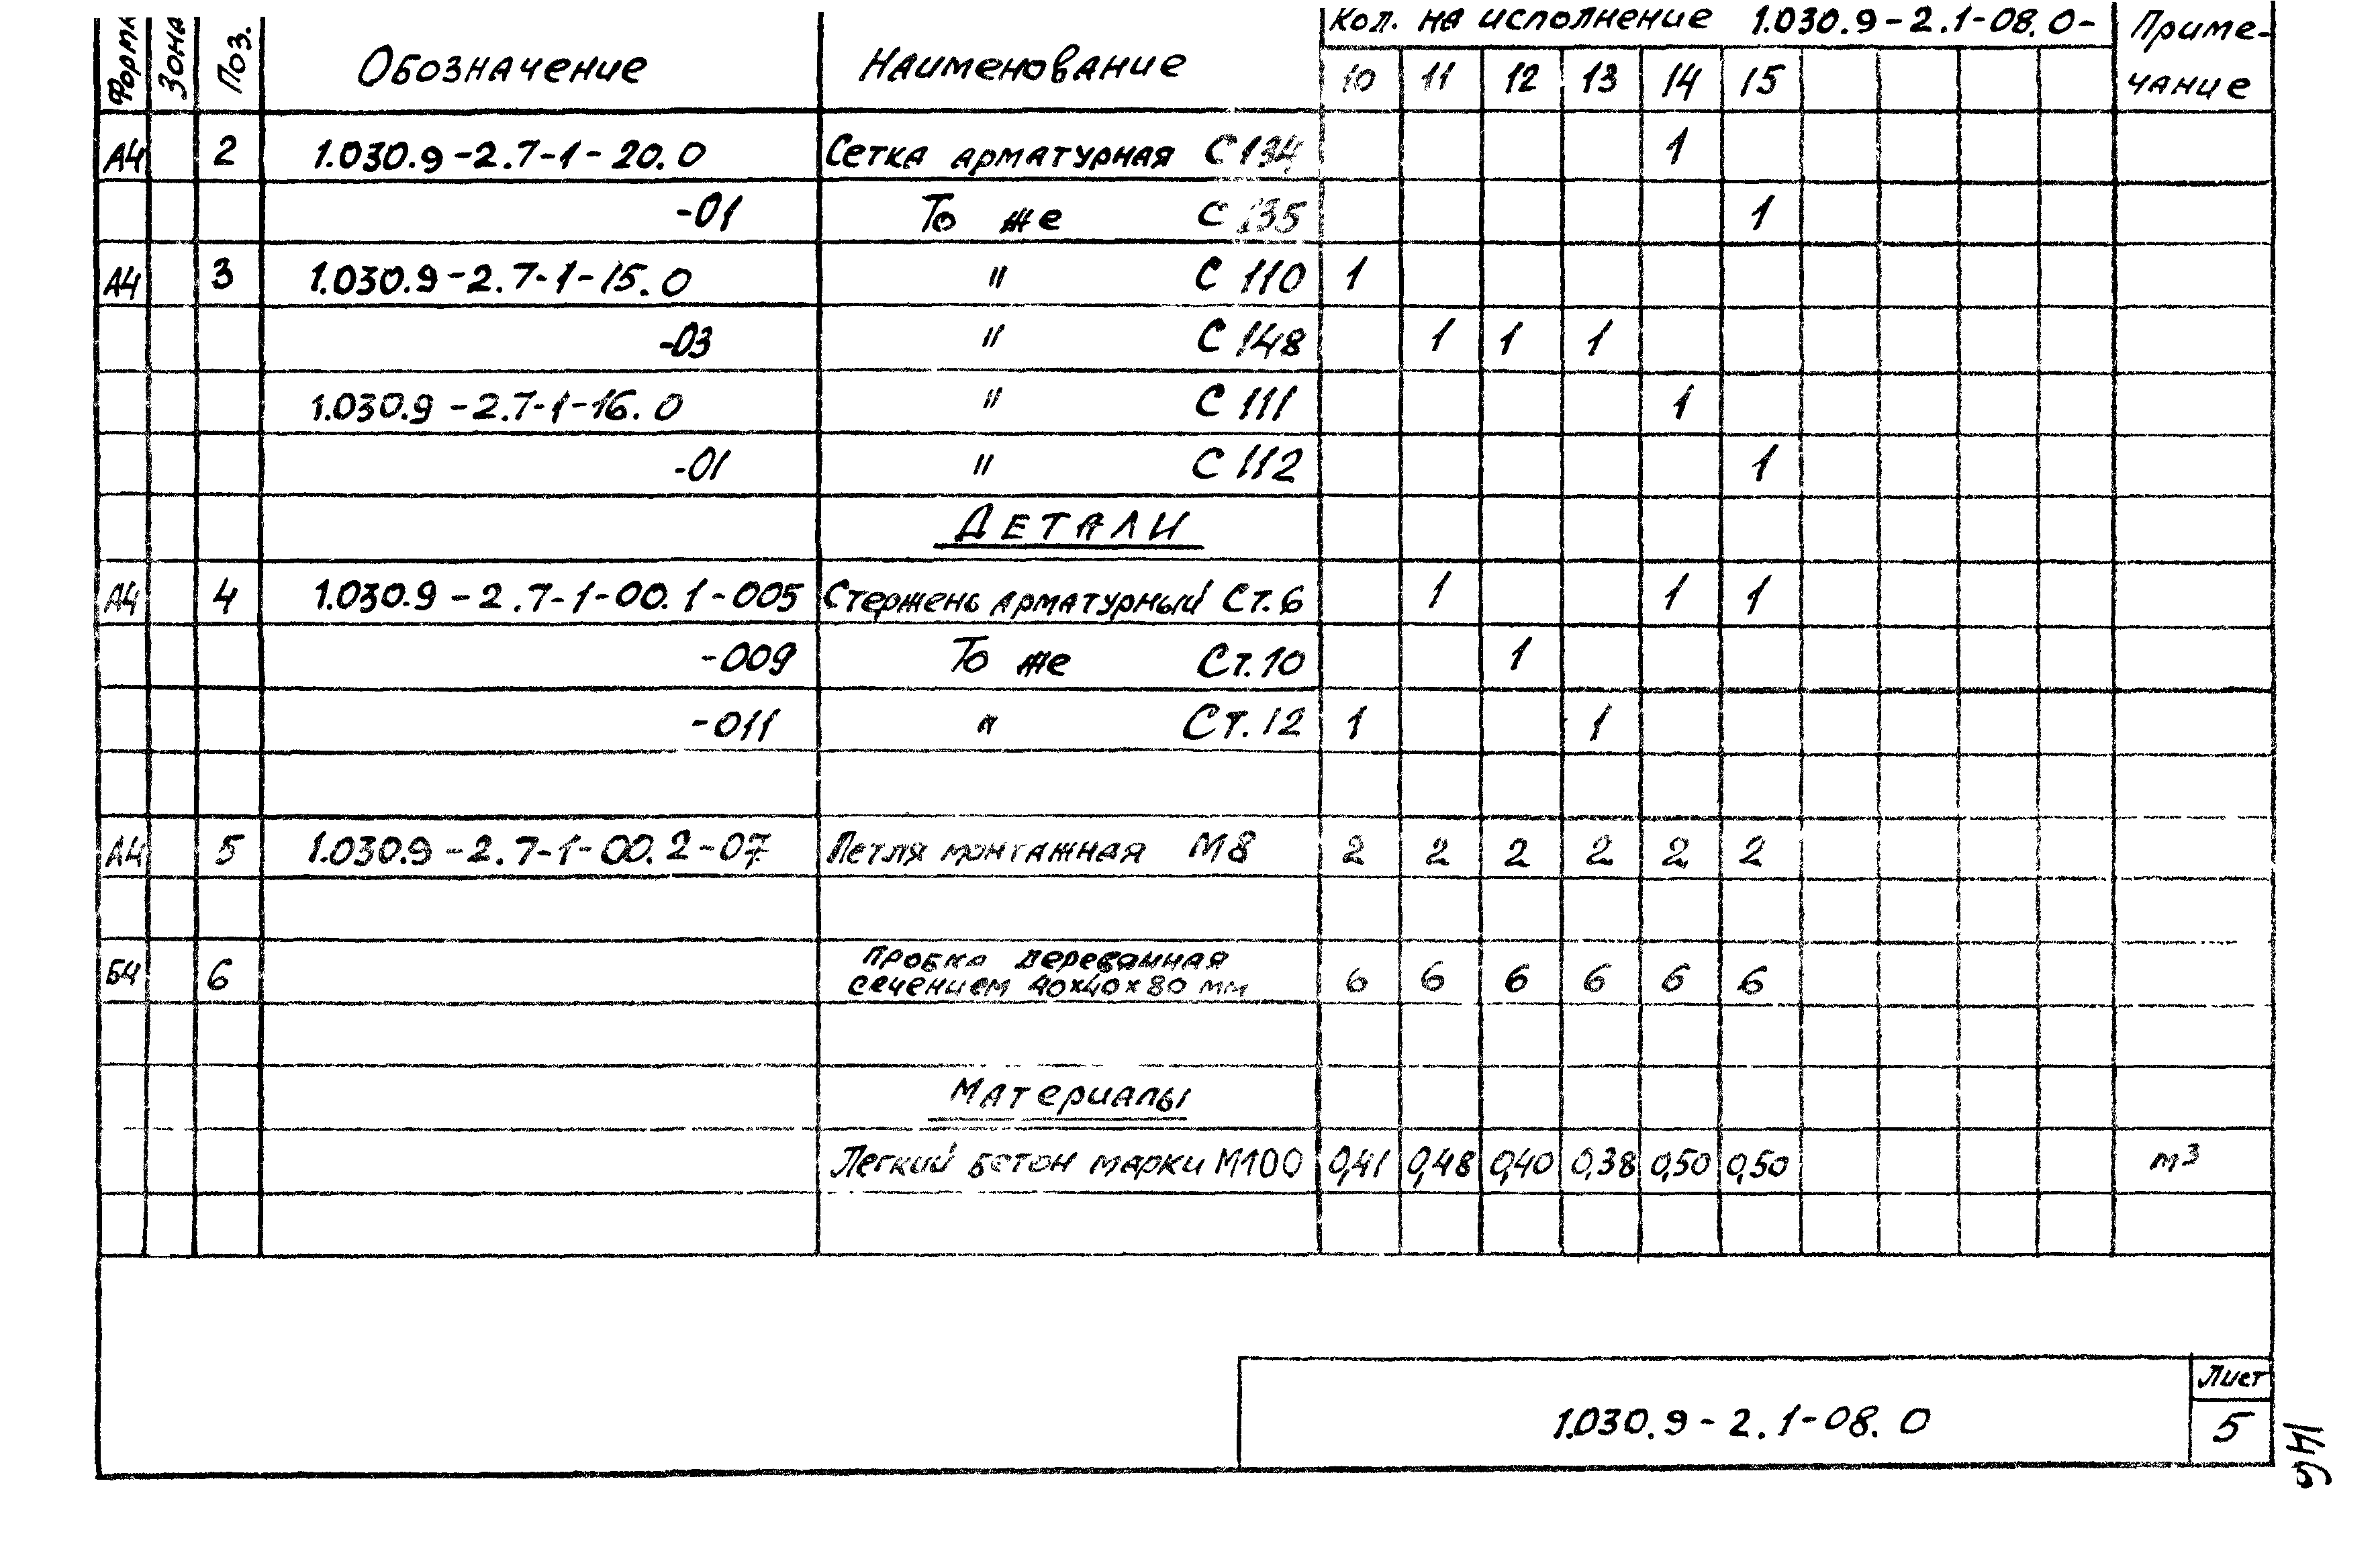 Форма Зона Поз. Обозначение Наименование Кол. на исполнение 1.030.9-2.1-08.0- Приме-
10 11 12 13 14 15 чание
А4 2 1.030.9-2.7-1-20.0 Сетка арматурная С 134 1
-01 То же С 135 1
А4 3 1.030.9-2.7-1-15.0 " С 110 1
-03 " С 148 1 1 1
1.030.9-2.7-1-16.0 " С 111 1
-01 " С 112 1
Детали
А4 4 1.030.9-2.7-1-00.1-005 Стержень арматурный Ст.6 1 1 1
-009 То же Ст.10 1
-011 " Ст.12 1 1
А4 5 1.030.9-2.7-1-00.2-07 Петля монтажная М8 2 2 2 2 2 2
Б4 6 Пробка деревянная
сечением 40х40х80 мм 6 6 6 6 6 6
Материалы
Легкий бетон марки М100 0,41 0,48 0,40 0,38 0,50 0,50 м3
1.030.9-2.1-08.0
Лист
5
146